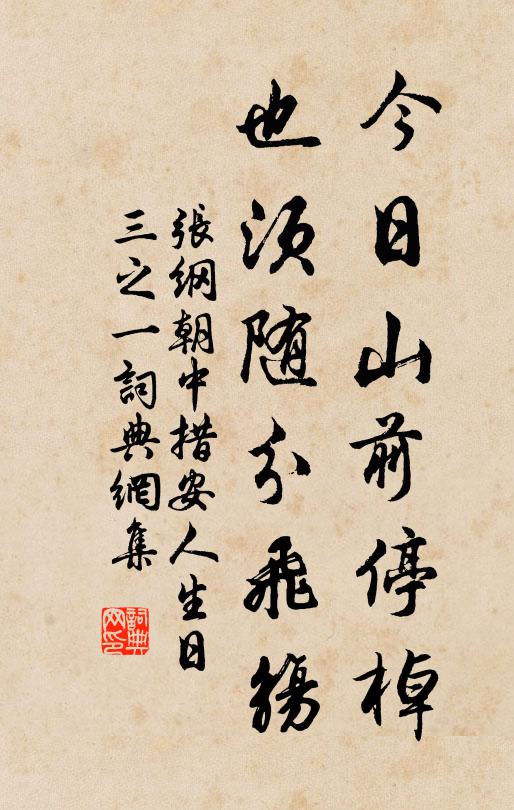 今日山前停棹
也須随分飛觴
張綱朝中措安人生日
三之一詞典網集
詞典网印